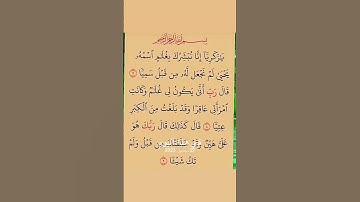 بسم الله الرحمن الرحيم
يَٰزَكَرِيَّآ إِنَّا نُبَشِّرُكَ بِغُلَٰمٍ ٱسْمُهُۥ
يَحْيَىٰ لَمْ نَجْعَل لَّهُۥ مِن قَبْلُ سَمِيًّا
قَالَ رَبِّ أَنَّىٰ يَكُونُ لِى غُلَٰمٌ وَكَانَتِ
ٱمْرَأَتِى عَاقِرًا وَقَدْ بَلَغْتُ مِنَ ٱلْكِبَرِ
عِتِيًّا قَالَ كَذَٰلِكَ قَالَ رَبُّكَ هُوَ
عَلَىَّ هَيِّنٌ وَقَدْ خَلَقْتُكَ مِن قَبْلُ وَلَمْ
تَكُ شَيْـًٔا